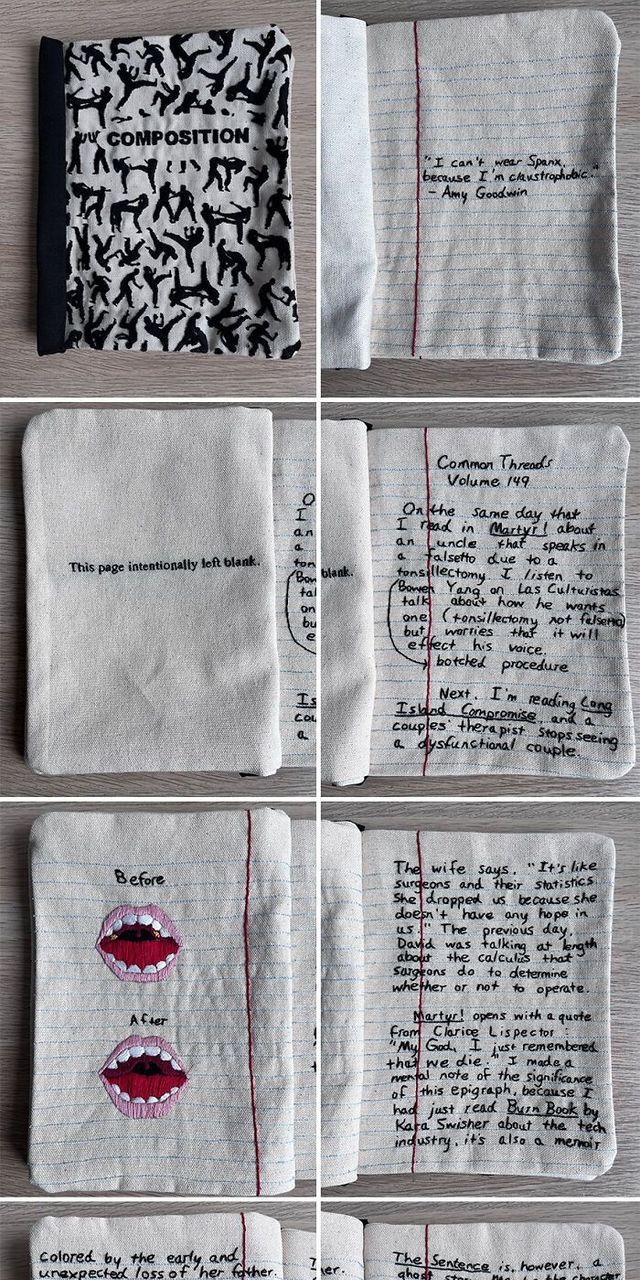 COMPOSITION
"I can't wear Spanx,
because I'm claustrophobic."
- Amy Goodwin
This page intentionally left blank.
O
I
an
a
ton
Bow
tal
on
bu
e
Is
cou
a
blank.
Common Threads
Volume 149
On the same day that
I read in Martyr! about
an uncle that speaks in
a falsetto due to a
tonsillectomy I listen to
Bowen Yang on Las Culturistas
talk about how he wants
one (tonsillectomy not falsetto)
but worries that it will
effect his voice.
botched procedure
Next, I'm reading Long
Island Compromise, and a
couples therapist stops seeing
a dysfunctional couple.
Before
After
The wife says, "It's like
surgeons and their statistics
She dropped us because she
doesn't have any hope in
us." The previous day,
David was talking at length
about the calculus that
surgeons do to determine
whether or not to operate.
Martyr! opens with a quote
from Clarice Lispector:
"My God, I just remembered
that we die." I made a
mental note of the significance
of this epigraph, because I
had just read Burn Book by
Kara Swisher about the tech
industry, it's also a memoir
colored by the early and
unexpected loss of her father.
her.
The Sentence is, however, a
ghost